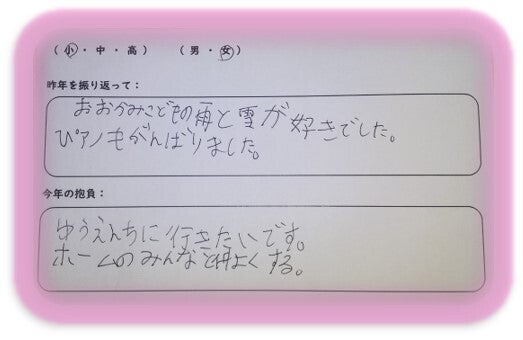 (小・中・高) (男・女)
昨年を振り返って:
おおかみこどもの雨と雪が好きでした。
ぴアノもがんばりました。
今年の抱負:
ゆうえんちに行きたいです。
ホームのみんなと仲よくする。